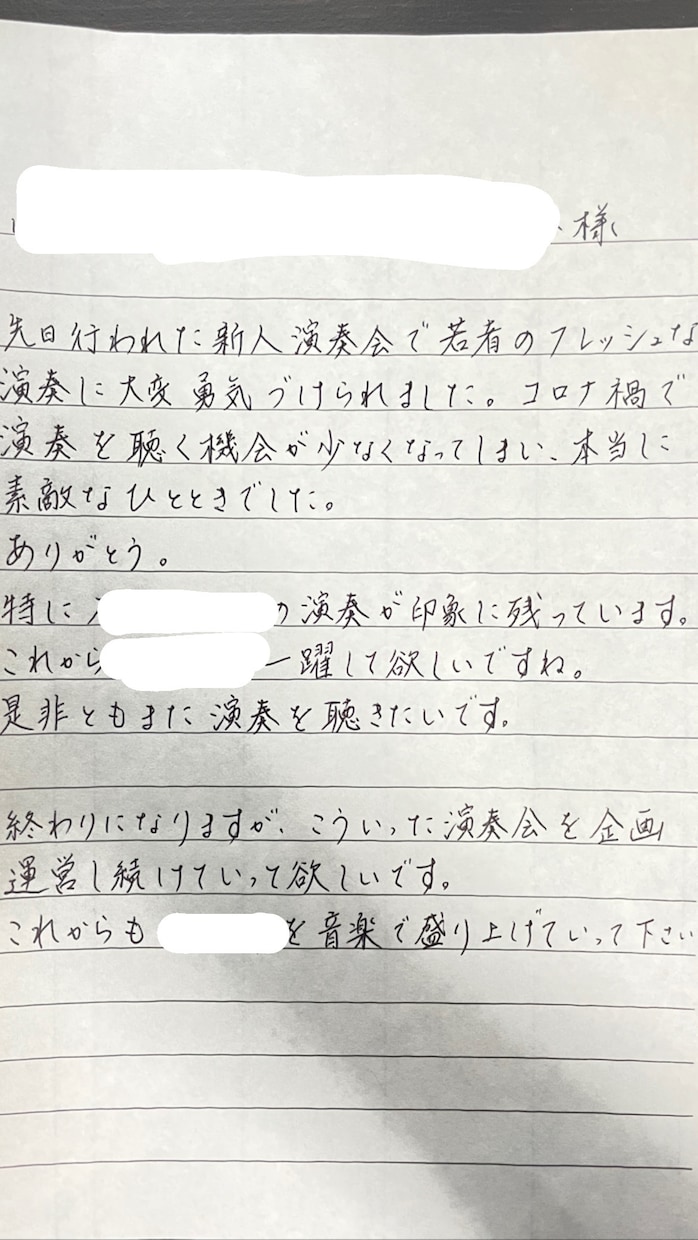 様
先日行われた新人演奏会で若者のフレッシュな
演奏に大変勇気づけられました。コロナ禍で
演奏を聴く機会が少なくなってしまい、本当に
素敵なひとときでした。
ありがとう。
特に の演奏が印象に残っています。
これから 躍して欲しいですね。
是非ともまた演奏を聴きたいです。
終わりになりますが、こういった演奏会を企画
運営し続けていって欲しいです。
これからも を音楽で盛り上げていって下さい